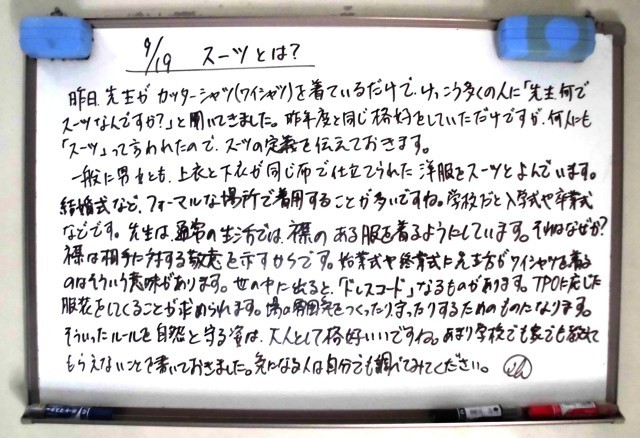 9/19 スーツとは?
昨日、先生がカッターシャツ(ワイシャツ)を着ているだけで、けっこう多くの人に「先生、何で
スーツなんですか?」と聞いてきました。昨年度と同じ格好をしていただけですが、何人にも
「スーツ」って言われたので、スーツの定義を伝えておきます。
一般に男女とも、上衣と下衣が同じ布で仕立てられた洋服をスーツとよんでいます。
結婚式など、フォーマルな場所で着用することが多いですね。学校だと入学式や卒業式
などです。先生は、通常の生活では、襟のある服を着るようにしています。それはなぜか?
襟は相手に対する敬意を示すからです。始業式や終業式に先生方がワイシャツを着る
のはそういう意味があります。世の中に出ると、「ドレスコード」なるものがあります。TPOに応じた
服装をしてくることが求められます。場の雰囲気をつくったり守ったりするためのものになります。
そういったルールを自然と守る姿は、大人として格好いいですね。あまり学校でも家でも教えて
もらえないことを書いておきました。気になる人は自分でも調べてみてください。